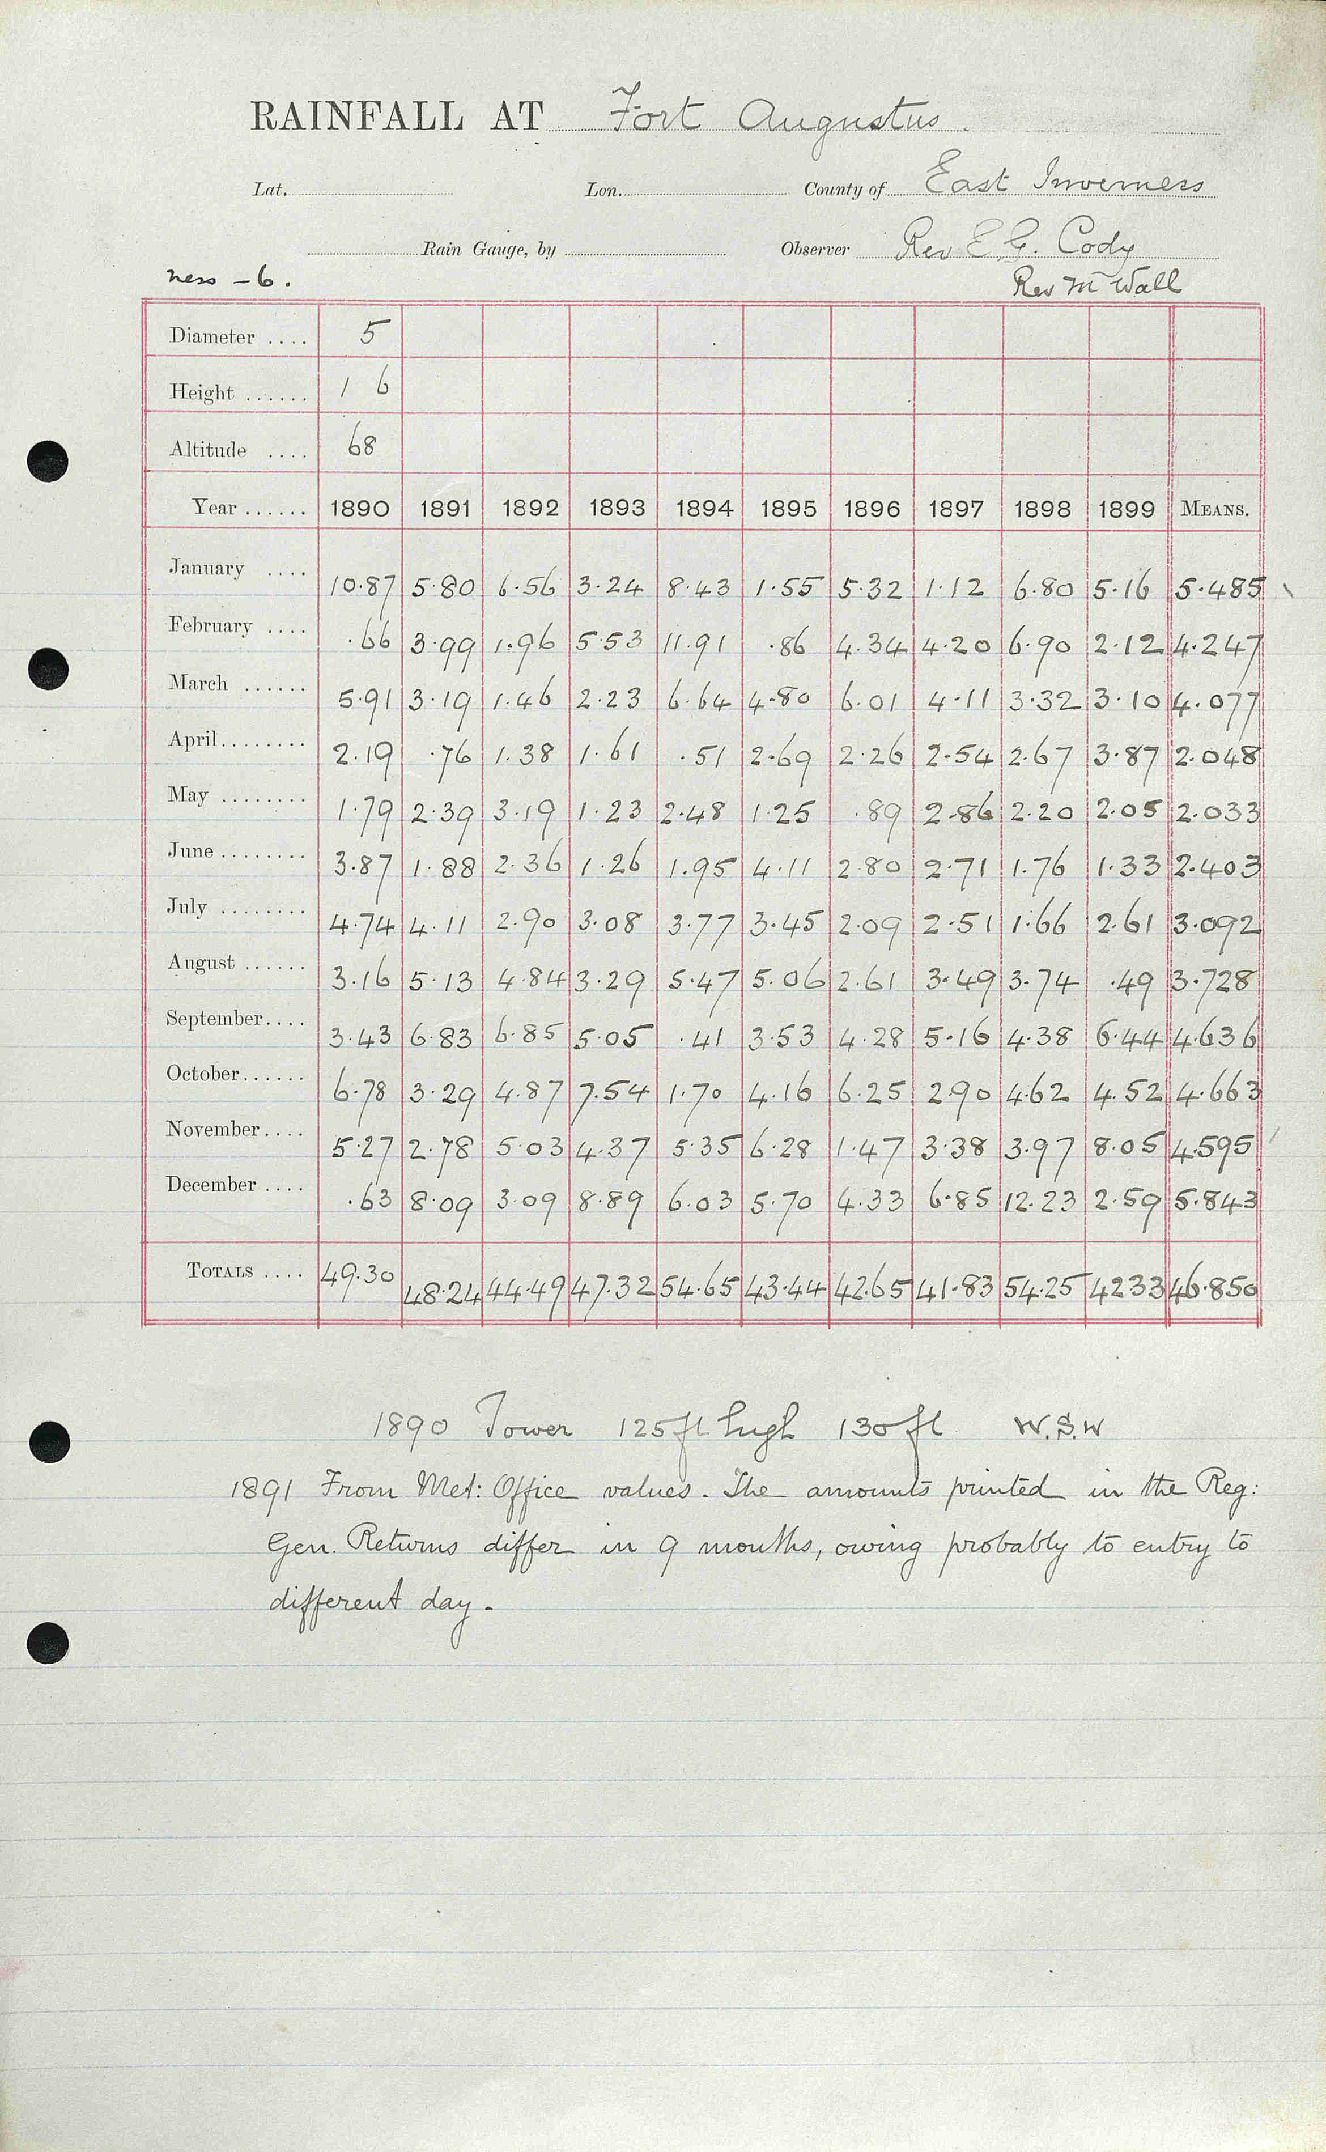 RAINFALL AT Fort Augustus.
Lat. Lon. County of East Inverness
Rain Gauge, by Observer Rev E.G. Cody
ness - 6. Rev M Wall
Diameter .... 5
Height ...... 1 6
Altitude .... 68
Year ...... 1890 1891 1892 1893 1894 1895 1896 1897 1898 1899 MEANS.
January .... 10.87 5.80 6.56 3.24 8.43 1.55 5.32 1.12 6.80 5.16 5.485
February .... .66 3.99 1.96 5.53 11.91 .86 4.34 4.20 6.90 2.12 4.247
March ...... 5.91 3.19 1.46 2.23 6.64 4.80 6.01 4.11 3.32 3.10 4.077
April........ 2.19 .76 1.38 1.61 .51 2.69 2.26 2.54 2.67 3.87 2.048
May ........ 1.79 2.39 3.19 1.23 2.48 1.25 .89 2.86 2.20 2.05 2.033
June ........ 3.87 1.88 2.36 1.26 1.95 4.11 2.80 2.71 1.76 1.33 2.403
July ........ 4.74 4.11 2.90 3.08 3.77 3.45 2.09 2.51 1.66 2.61 3.092
August ...... 3.16 5.13 4.84 3.29 5.47 5.06 2.61 3.49 3.74 .49 3.728
September.... 3.43 6.83 6.85 5.05 .41 3.53 4.28 5.16 4.38 6.44 4.636
October...... 6.78 3.29 4.87 7.54 1.70 4.16 6.25 2.90 4.62 4.52 4.663
November.... 5.27 2.78 5.03 4.37 5.35 6.28 1.47 3.38 3.97 8.05 4.595
December .... .63 8.09 3.09 8.89 6.03 5.70 4.33 6.85 12.23 2.59 5.843
TOTALS .... 49.30 48.24 44.49 47.32 54.65 43.44 42.65 41.83 54.25 42.33 46.850
1890 Tower 125ft high 130ft W.S.W
1891 From Met: Office values. The amounts printed in the Reg:
Gen. Returns differ in 9 months, owing probably to entry to
different day.